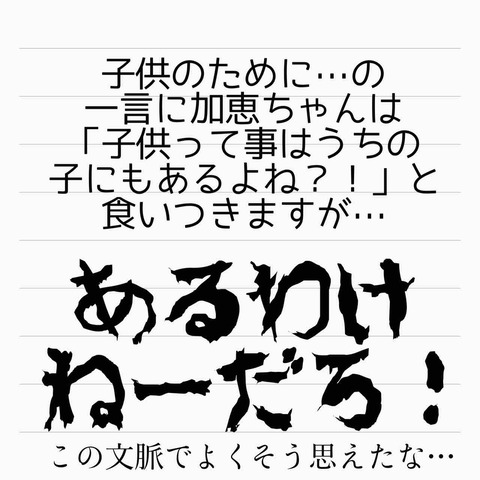 子供のために…の
一言に加恵ちゃんは
「子供って事はうちの
子にもあるよね？！」と
食いつきますが…
あるわけ
ねーだろ！
この文脈でよくそう思えたな…